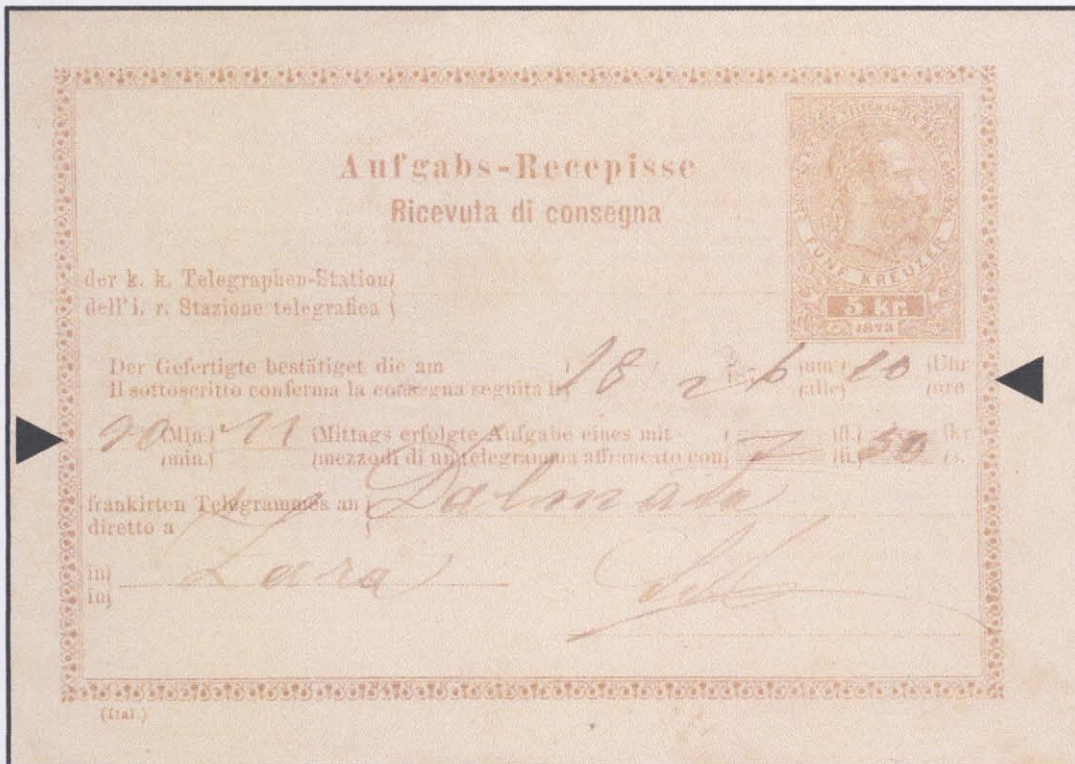 Aufgabs-Recepisse
Ricevuta di consegna
FÜNF KREUZER
5 Kr.
1873
der k. k. Telegraphen-Station)
dell'i. r. Stazione telegrafica (
Der Gefertigte bestätiget die am ) 18 (um) 10 (Uhr
Il sottoscritto conferma la consegna seguita in) (alle) (ore
(Min.) 11 (Mittags erfolgte Aufgabe eines mit ( (fl.) 50 (kr.
(min.) (mezzodi di un telegramma affrancato con( (fi.) (s.
frankirten Telegrammes an ) Dalmata
diretto a )
in) Zara
in)
(Ital.)